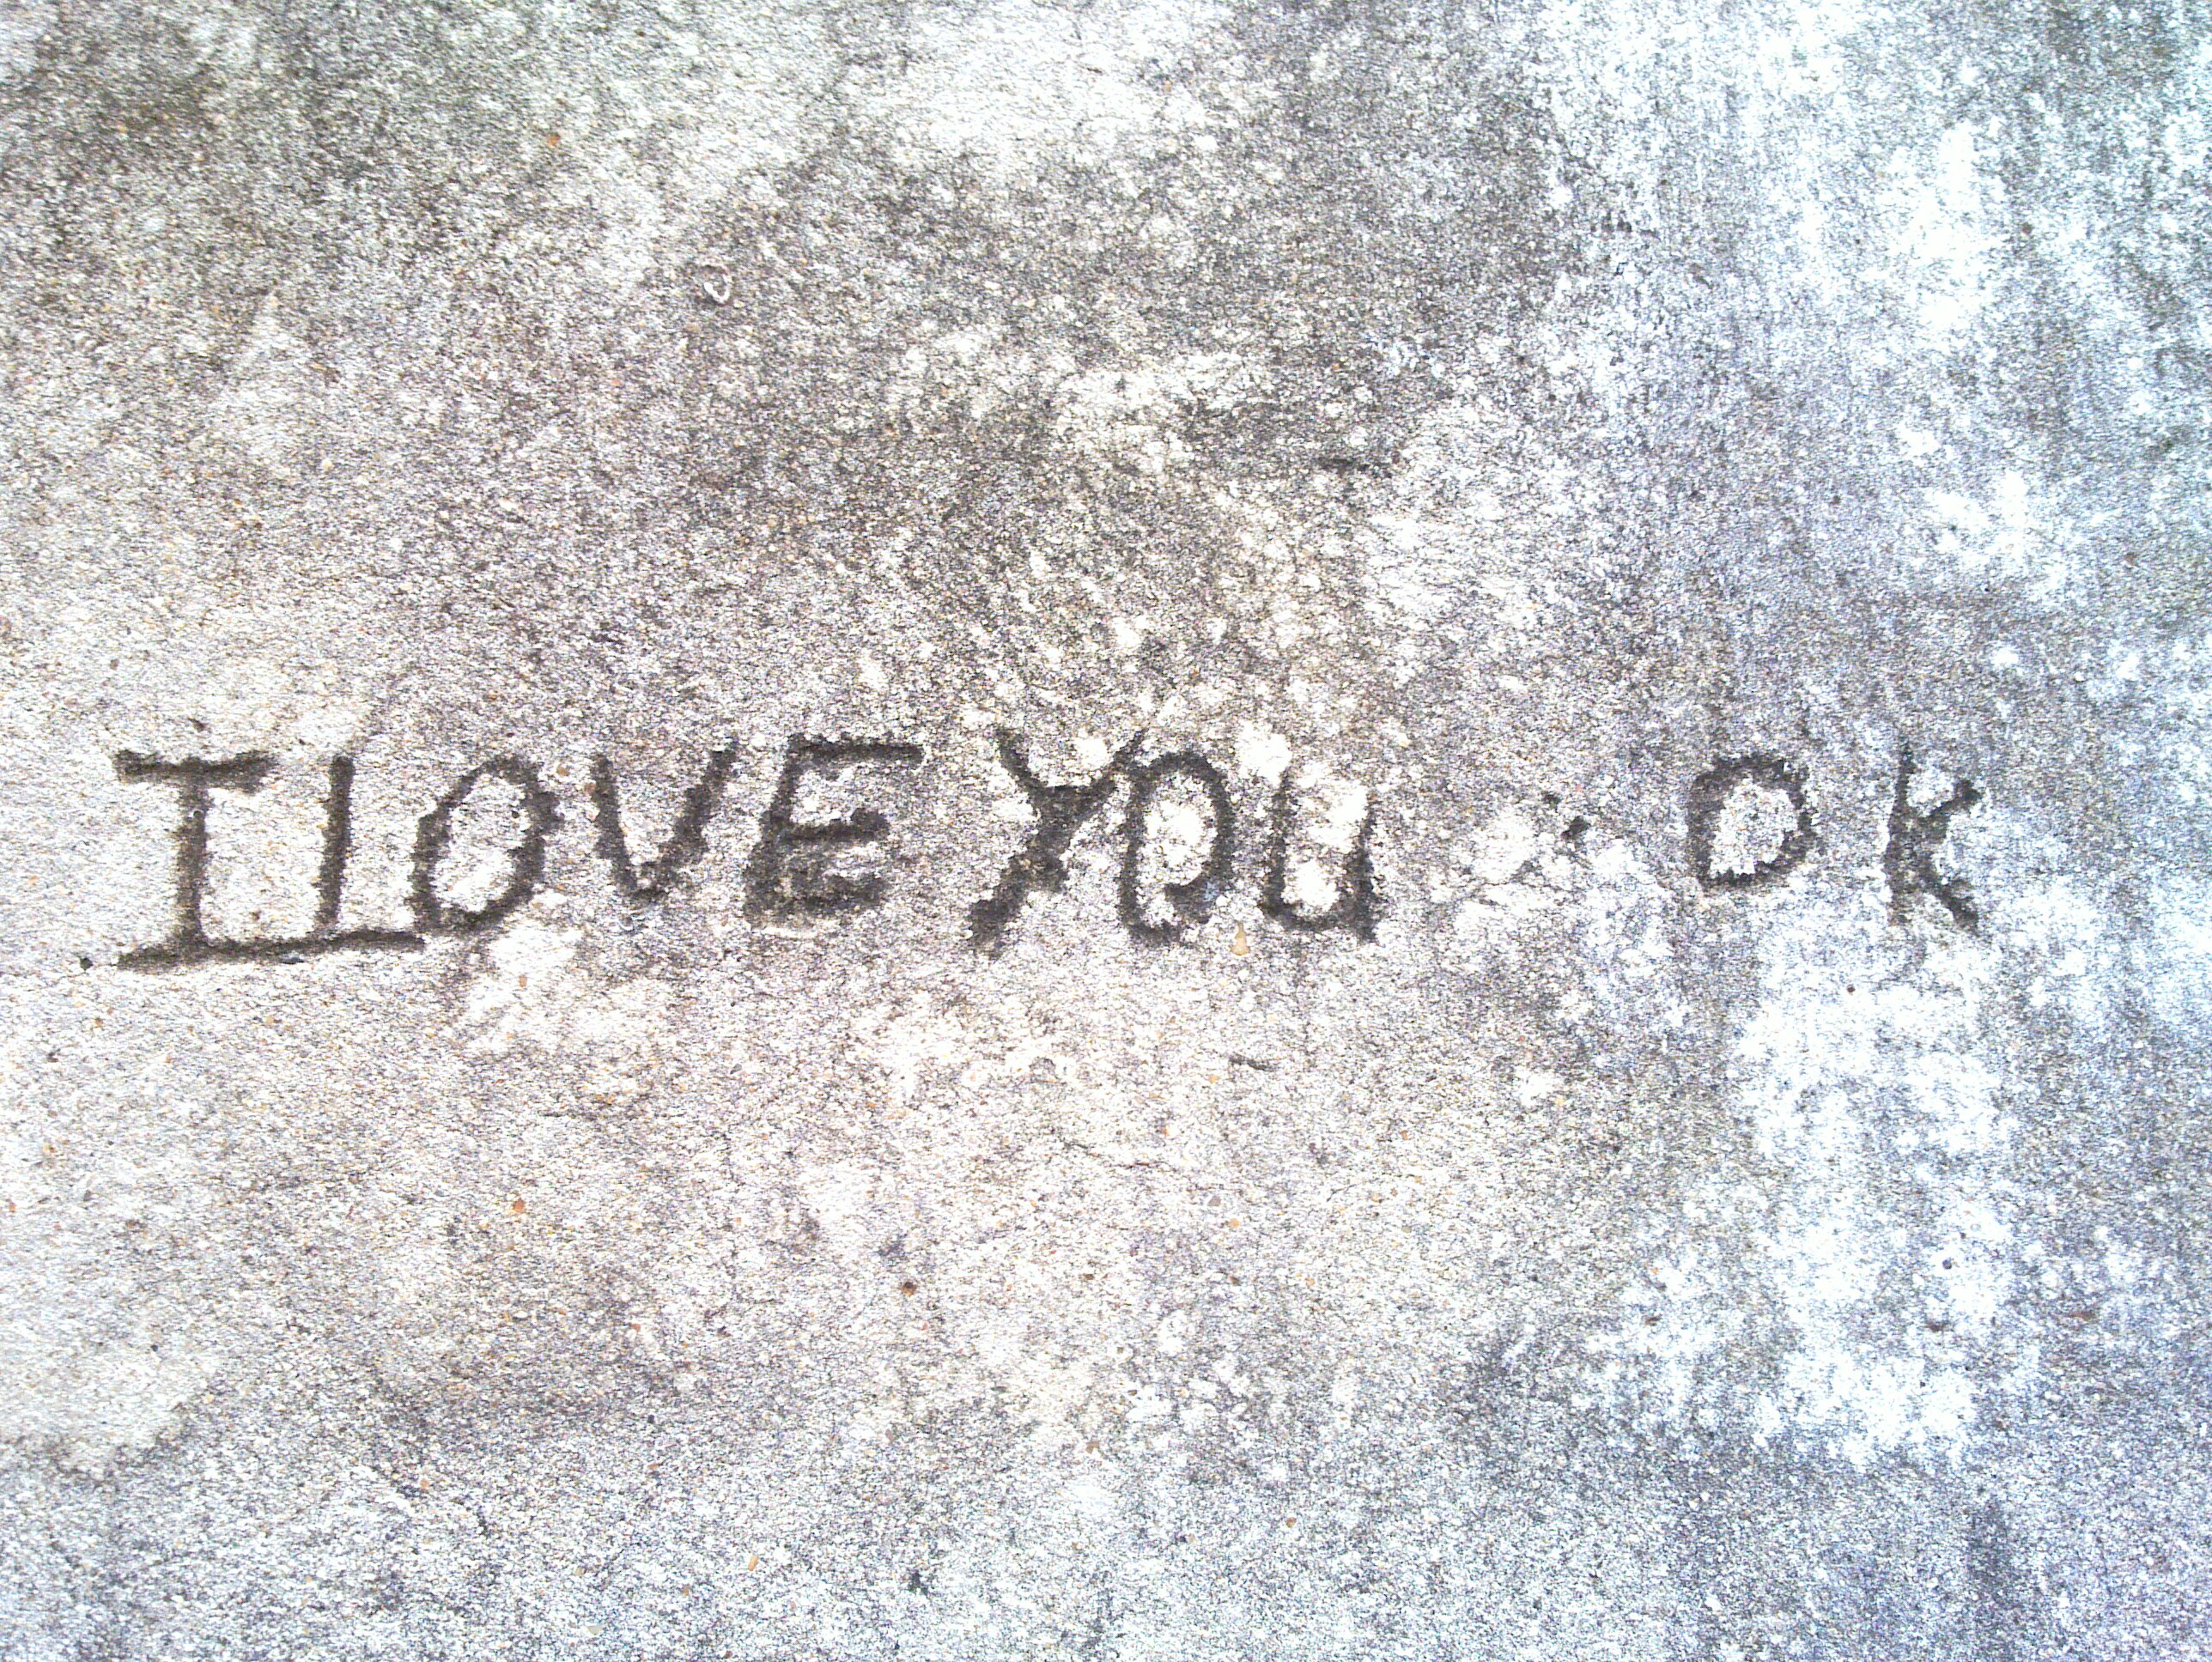 I LOVE YOU . OK